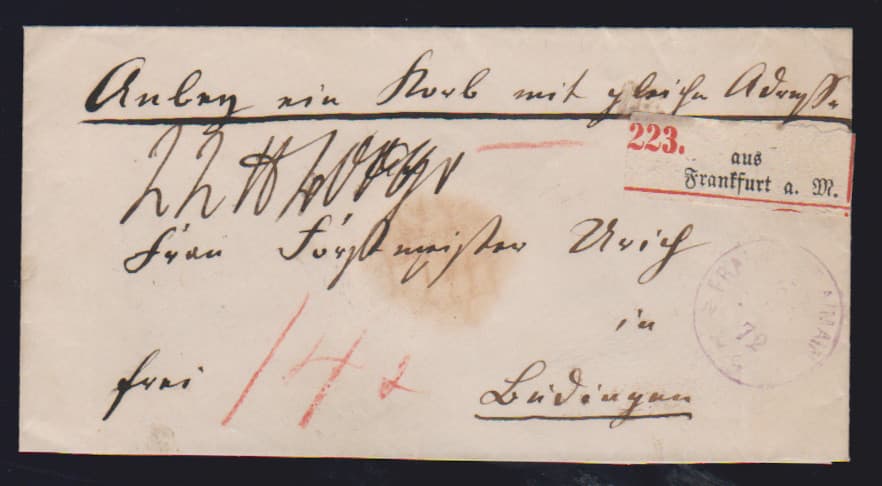 Anbey ein Korb mit gleicher Adresse
223.
aus
Frankfurt a. M.
22 ℔
Frau Forstmeister Urich
in
frei
Büdingen
FRA
72